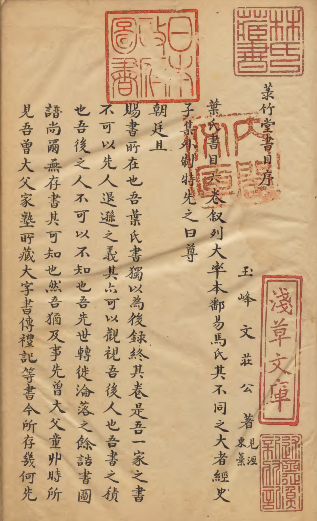 菉竹堂書目序
玉峰文莊公著
葉氏書目六卷叙列大率本鄱易馬氏其不同之大者經史
子集外制特先之曰尊
朝廷且
賜書所在也吾葉氏書獨以為後録終其卷是吾一家之書
不可以先人退遜之義其亦可以觀視吾後人也吾書之積
也吾後之人不可以不知也吾先世轉徙淪落之餘誥書圖
譜尚爾無存書其可知也然吾猶及事先曾大父童丱時所
見吾曾大父家塾所藏大字書傳禮記等書今所存幾何先
林氏藏書
日本政府圖書
淺草文庫